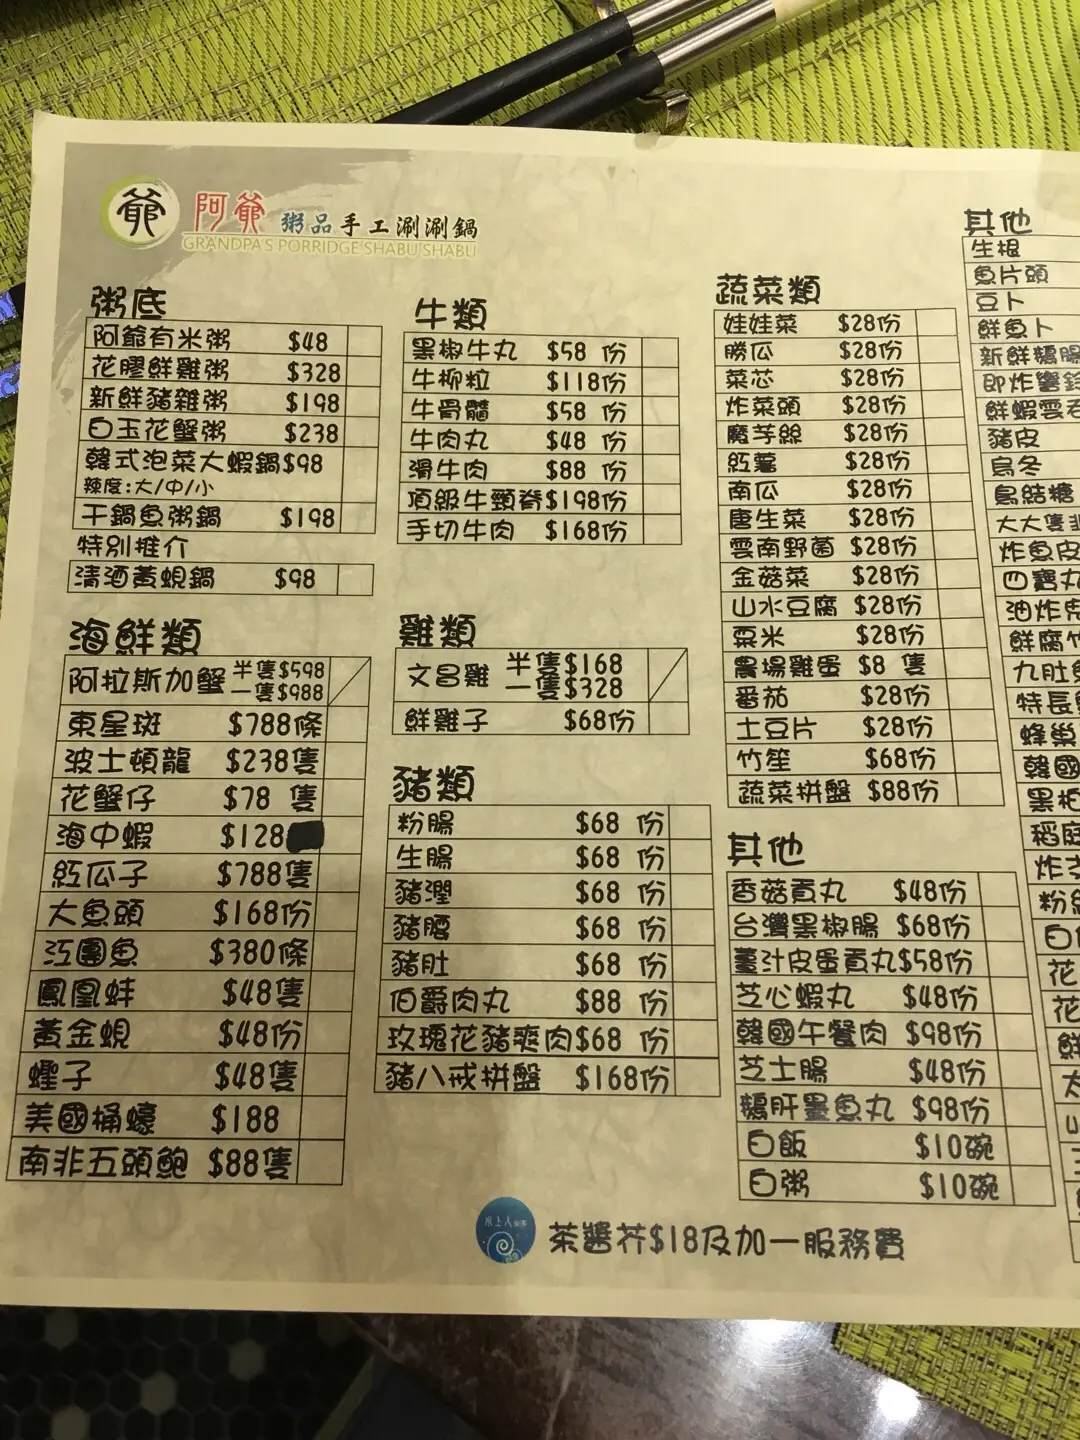 爺 阿爺 粥品手工涮涮鍋
GRANDPA'S PORRIDGE SHABU SHABU
粥底
阿爺有米粥 $48
花膠鮮雞粥 $328
新鮮豬雜粥 $198
白玉花蟹粥 $238
韓式泡菜大蝦鍋$98
辣度:大/中/小
干鍋魚粥鍋 $198
特別推介
清酒黃蜆鍋 $98
海鮮類
阿拉斯加蟹 半隻$598
一隻$988
東星斑 $788條
波士頓龍 $238隻
花蟹仔 $78 隻
海中蝦 $128
紅瓜子 $788隻
大魚頭 $168份
江團魚 $380條
鳳凰蚌 $48隻
黃金蜆 $48份
蟶子 $48隻
美國桶蠔 $188
南非五頭鮑 $88隻
牛類
黑椒牛丸 $58 份
牛柳粒 $118份
牛骨髓 $58 份
牛肉丸 $48 份
滑牛肉 $88 份
頂級牛頸脊$198份
手切牛肉 $168份
雞類
文昌雞 半隻$168
一隻$328
鮮雞子 $68份
豬類
粉腸 $68 份
生腸 $68 份
豬潤 $68 份
豬腰 $68 份
豬肚 $68 份
伯爵肉丸 $88 份
玫瑰花豬爽肉$68 份
豬八戒拼盤 $168份
蔬菜類
娃娃菜 $28份
勝瓜 $28份
菜芯 $28份
炸菜頭 $28份
魔芋絲 $28份
紅薯 $28份
南瓜 $28份
唐生菜 $28份
雲南野菌 $28份
金菇菜 $28份
山水豆腐 $28份
粟米 $28份
農場雞蛋 $8 隻
番茄 $28份
土豆片 $28份
竹笙 $68份
蔬菜拼盤 $88份
其他
香菇貢丸 $48份
台灣黑椒腸 $68份
薑汁皮蛋貢丸$58份
芝心蝦丸 $48份
韓國午餐肉 $98份
芝士腸 $48份
鵝肝墨魚丸 $98份
白飯 $10碗
白粥 $10碗
其他
生根
魚片頭
豆卜
鮮魚卜
新鮮鵝腸
即炸響鈴
鮮蝦雲吞
豬皮
烏冬
烏結糖
大大隻
炸魚皮
四寶丸
油炸
鮮腐竹
九肚魚
特長
蜂巢
韓國
黑柏
稻庭
炸
粉
白
花
花
鮮
茶醬芥$18及加一服務費